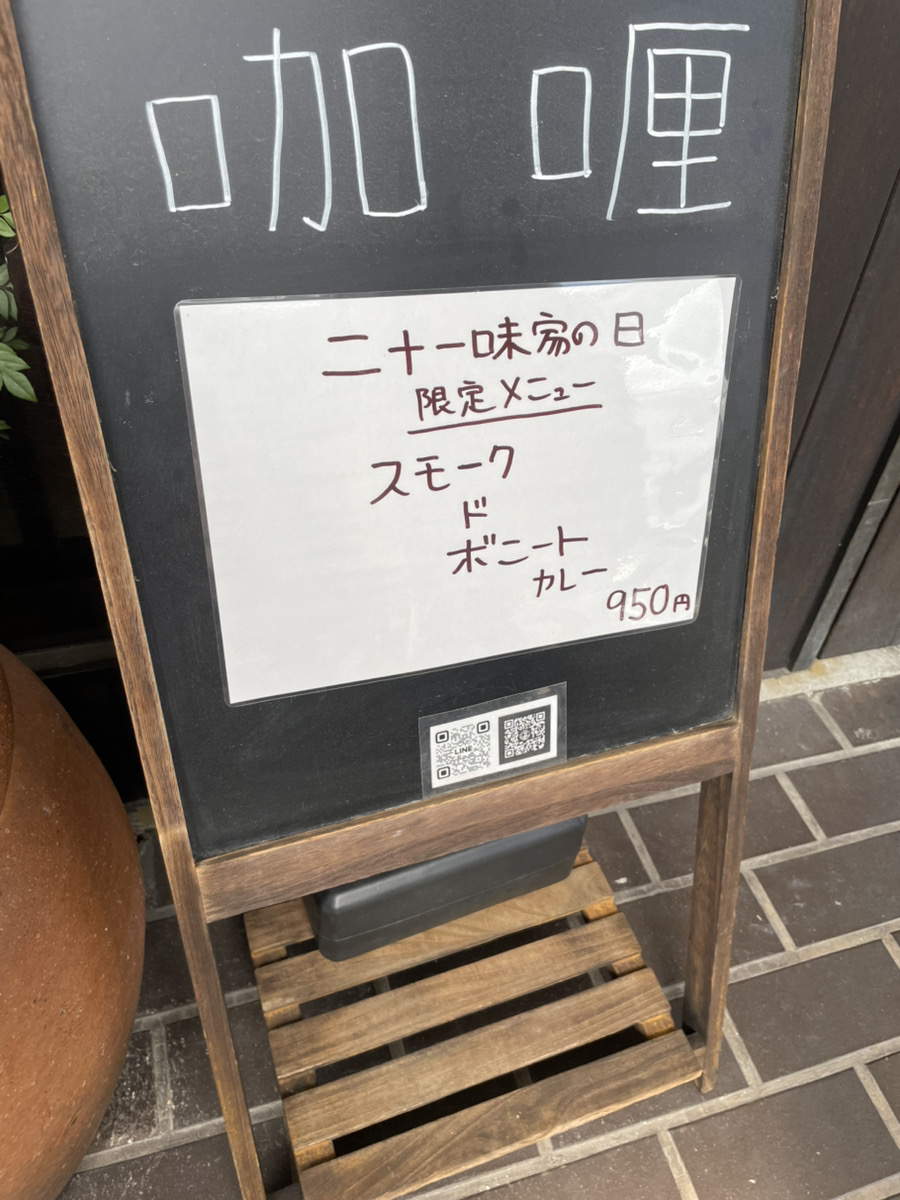 咖喱
二十一味家の日
限定メニュー
スモーク
ド
ボニート
カレー
950円
LINE